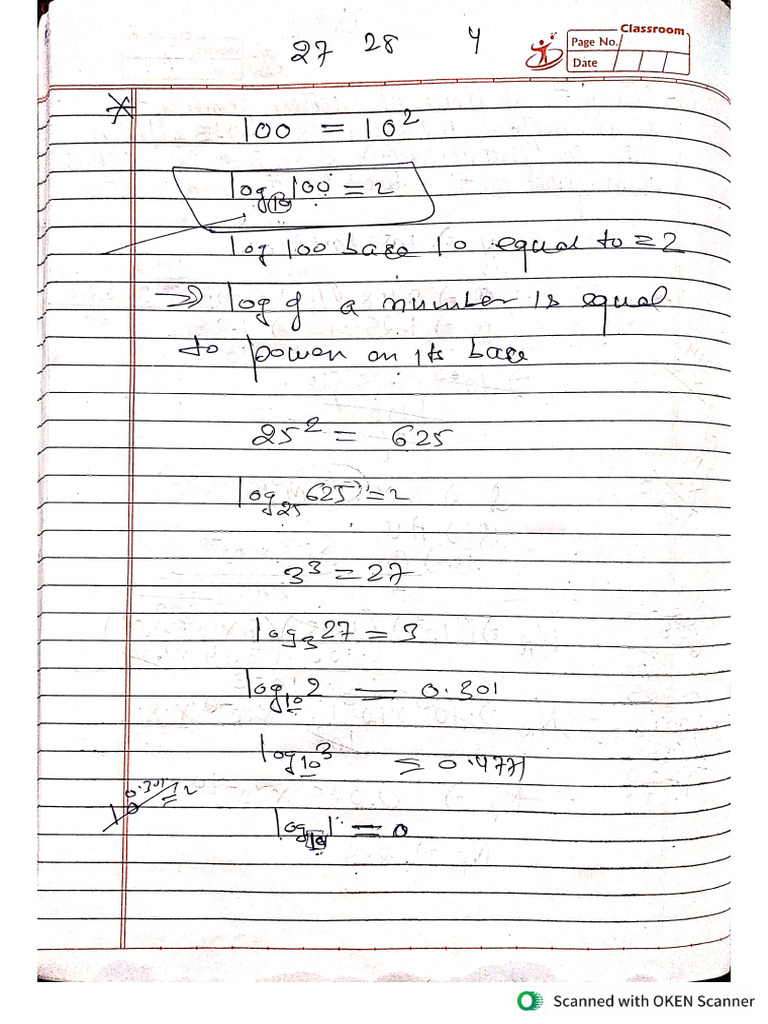 27 28 4
Classroom
Page No.
Date
100 = 10²
log₁₀100 = 2
log 100 base 10 equal to = 2
⇒ log of a number is equal
to power on its base
25² = 625
log₂₅(625) = 2
3³ = 27
log₃27 = 3
log₁₀2 = 0.301
log₁₀3 = 0.4771
10^0.301 = 2
log₁₀1 = 0
Scanned with OKEN Scanner